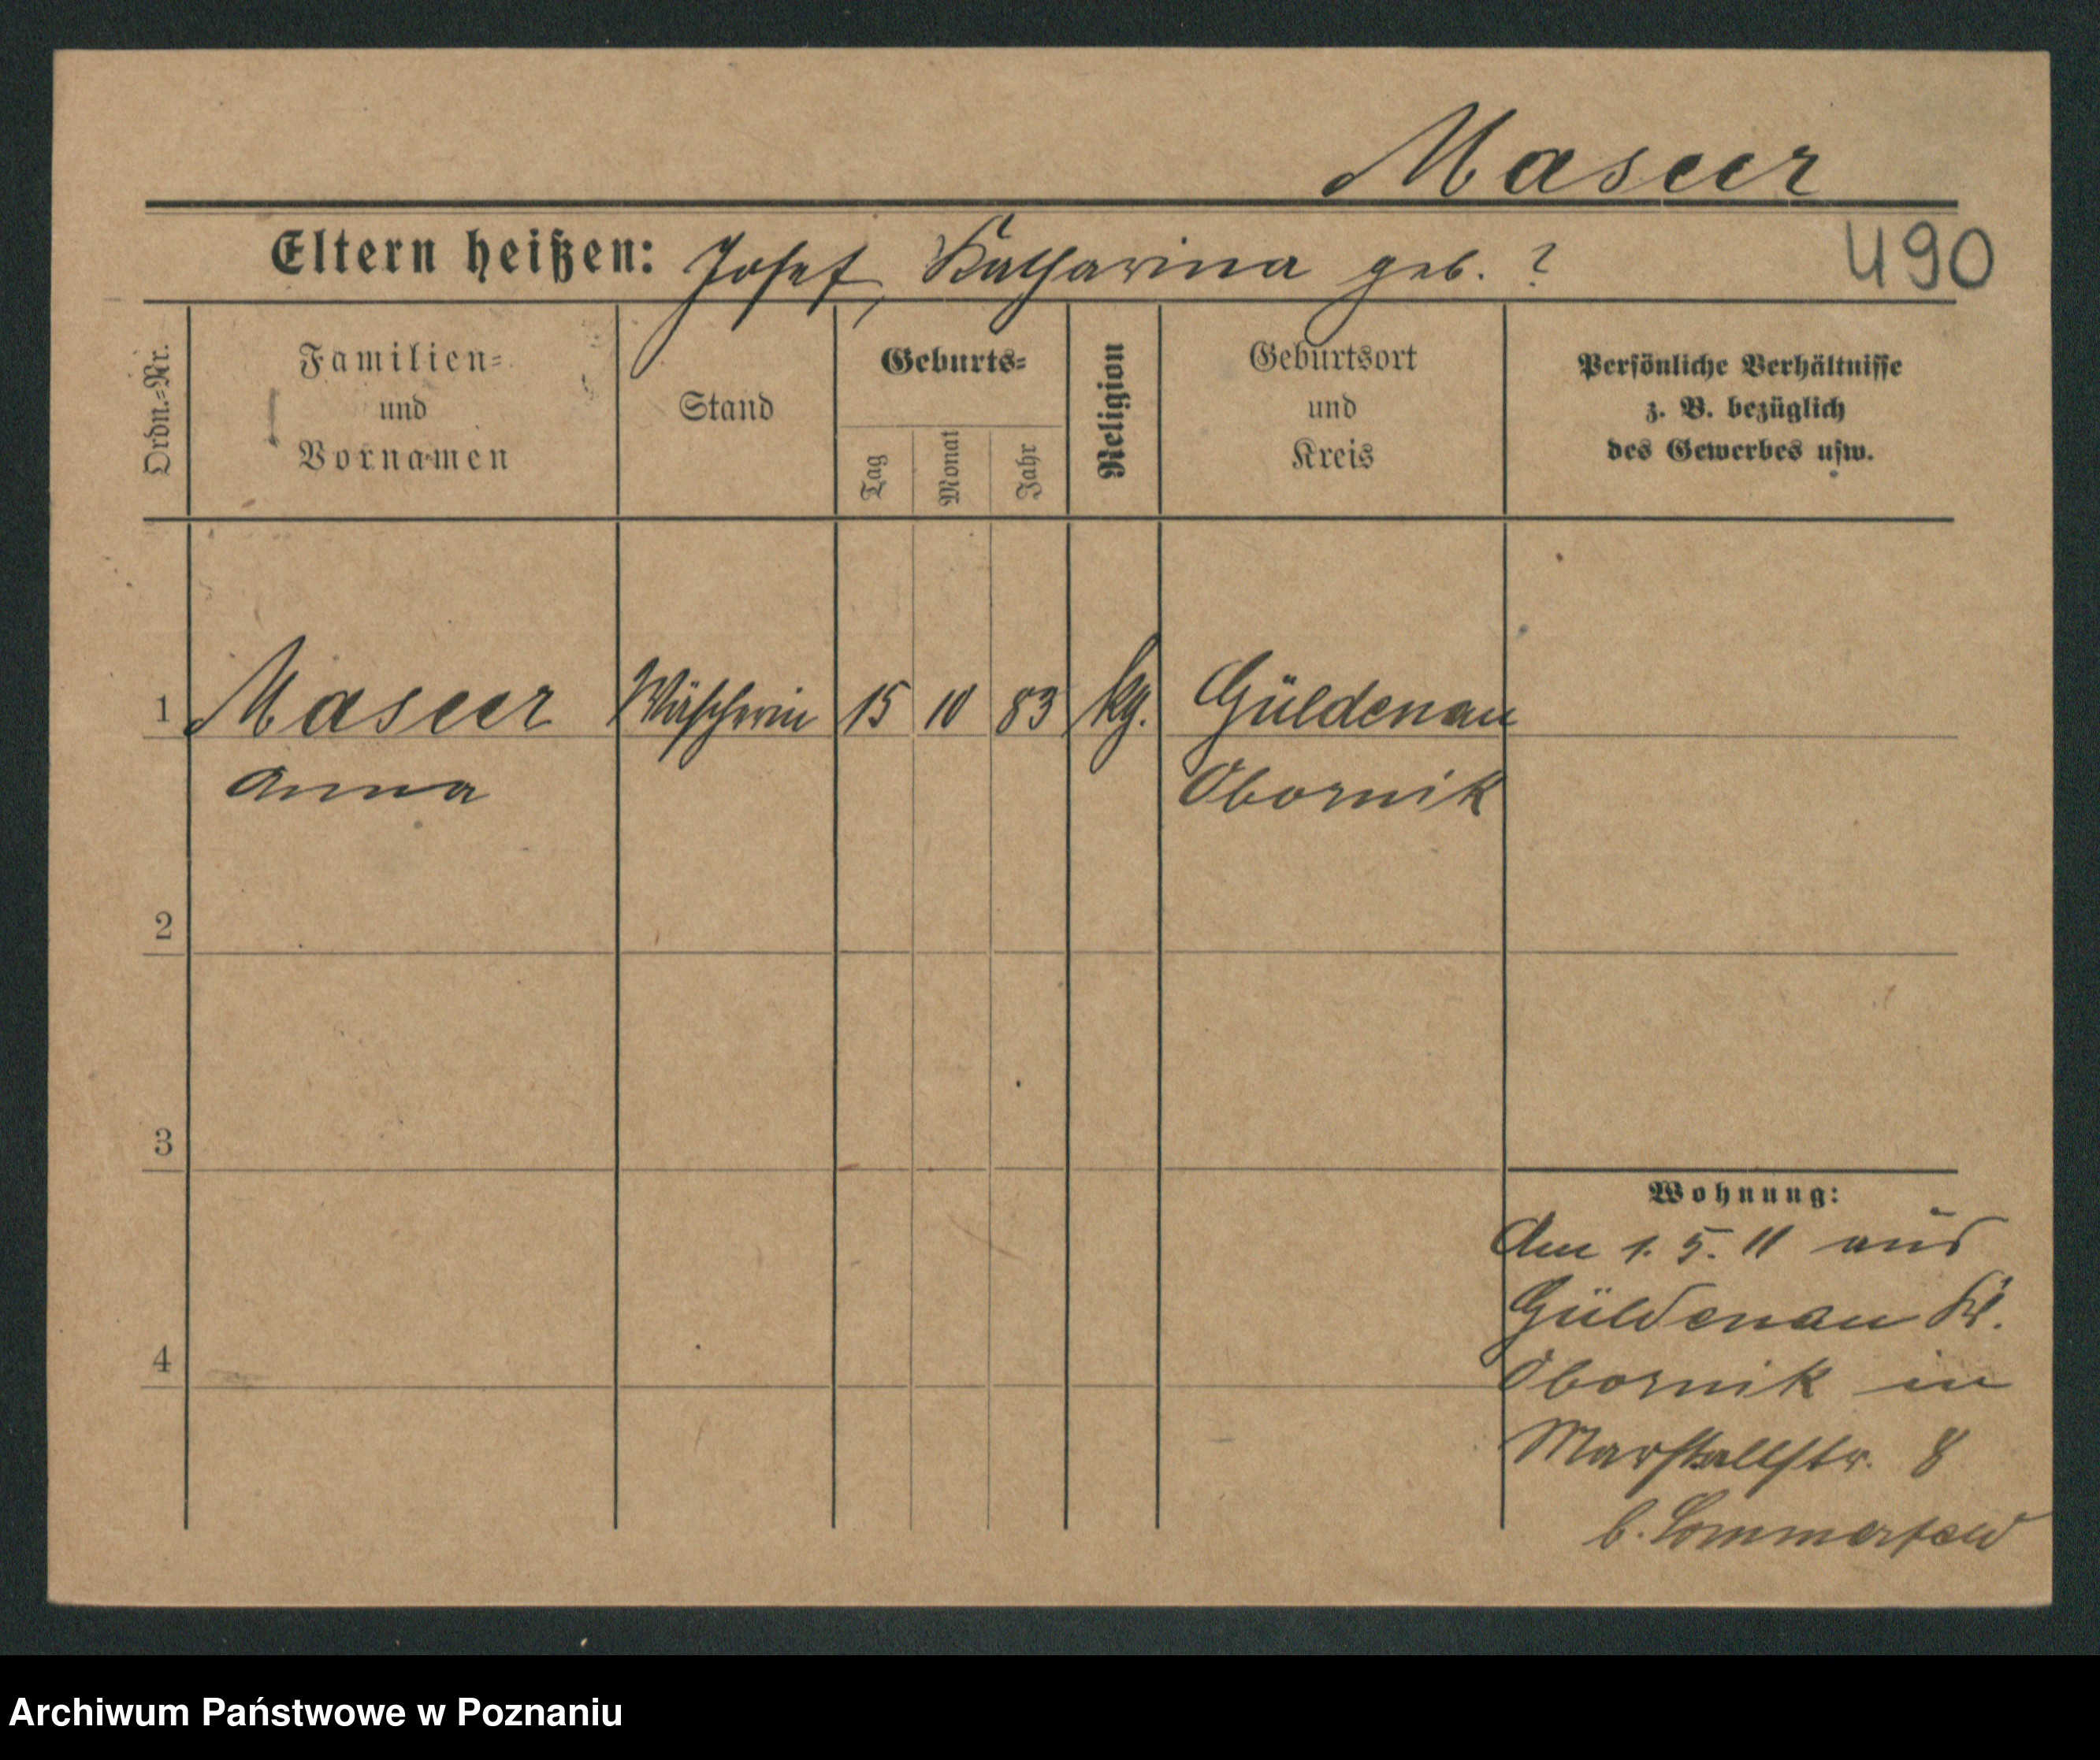 Maseer
Eltern heißen: Josef, Katharina geb. ?
490
Ordn.-Nr.
Familien-
und
Vornamen
Stand
Geburts-
Tag
Monat
Jahr
Religion
Geburtsort
und
Kreis
Persönliche Verhältnisse
z. B. bezüglich
des Gewerbes usw.
1 Maseer Wäscherin 15 10 83 kg. Güldenau
Anna Obornik
2
3
4
Wohnung:
Am 1. 5. 11 aus
Güldenau Kr.
Obornik in
Marstallstr. 8
b. Sommerfeld
Archiwum Państwowe w Poznaniu